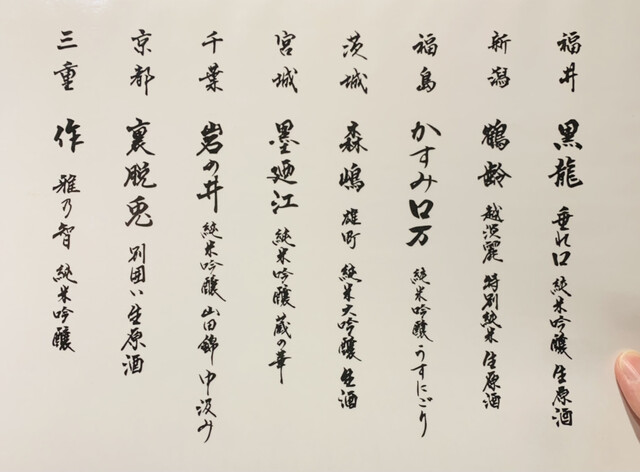 福井 黒龍 垂れ口 純米吟醸 生原酒
新潟 鶴齢 越淡麗 特別純米 生原酒
福島 かすみロ万 純米吟醸 うすにごり
茨城 森嶋 雄町 純米大吟醸 生酒
宮城 墨廼江 純米吟醸 蔵の華
千葉 岩の井 純米吟醸 山田錦 中汲み
京都 裏脱兎 別囲い生原酒
三重 作 雅乃智 純米吟醸